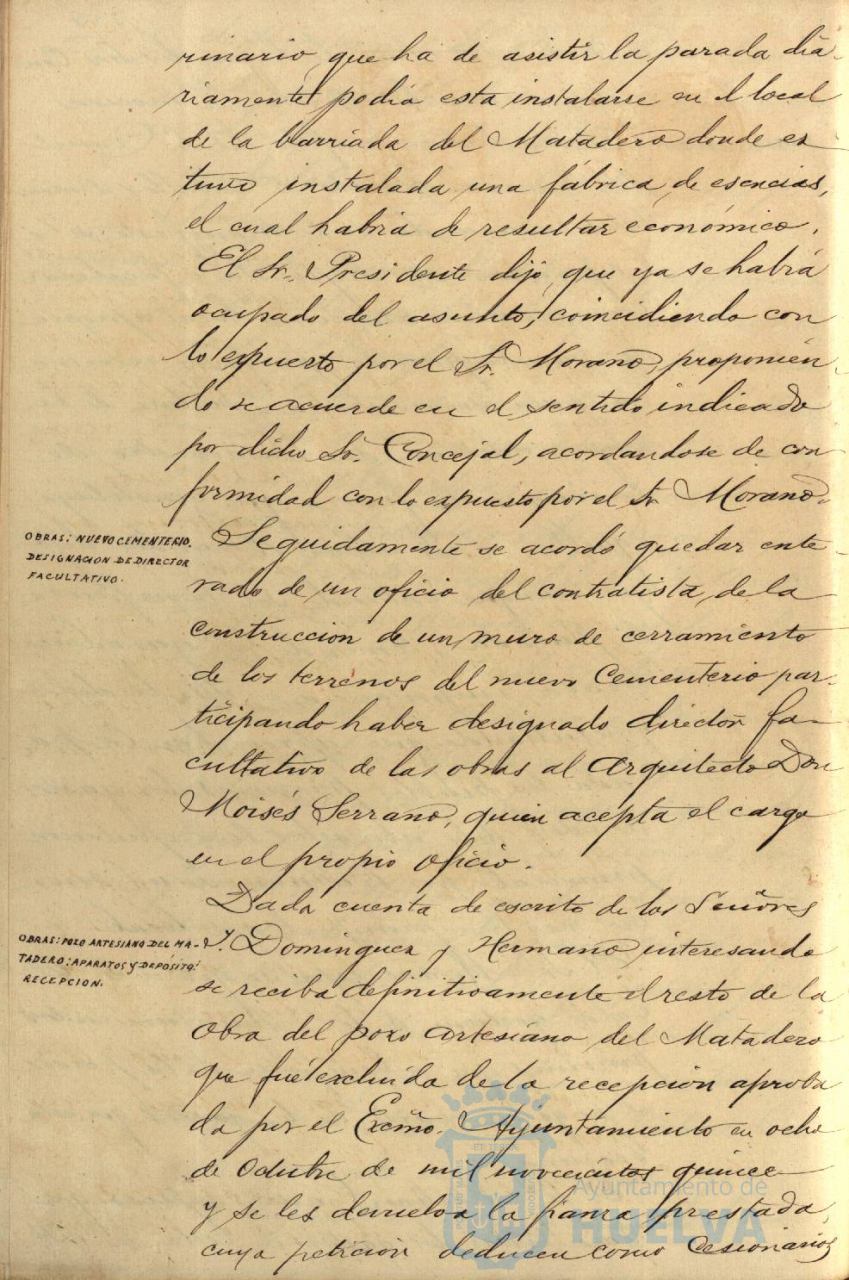 rinario, que ha de asistir la parada dia-
riamente podia esta instalarse en el local
de la barriada del Matadero donde es
tuvo instalada una fábrica de esencias,
el cual habria de resultar económico.
El Sr. Presidente dijo, que ya se habia
ocupado del asunto, coincidiendo con
lo expuesto por el Sr. Morano, proponien-
do se acuerde en el sentido indicado
por dicho Sr. Concejal, acordandose de con
formidad con lo expuesto por el Sr. Morano.
OBRAS: NUEVO CEMENTERIO.
DESIGNACION DE DIRECTOR
FACULTATIVO.
Seguidamente se acordó quedar ente-
rado de un oficio del contratista de la
construccion de un muro de cerramiento
de los terrenos del nuevo Cementerio par-
ticipando haber designado director fa-
cultativo de las obras al Arquitecto Don
Moisés Serrano, quien acepta el cargo
en el propio oficio.
OBRAS: POZO ARTESIANO DEL MA-
TADERO: APARATOS Y DEPÓSITO:
RECEPCION.
Dada cuenta de escrito de los Señores
Y. Dominguez y Hermano interesando
se reciba definitivamente el resto de la
obra del pozo artesiano del Matadero
que fué excluida de la recepción aproba
da por el Excmo. Ayuntamiento en ocho
de Octubre de mil novecientos quince
y se les devuelva la fianza prestada,
cuya petición deducen como Cesionarios
Ayuntamiento de
HUELVA